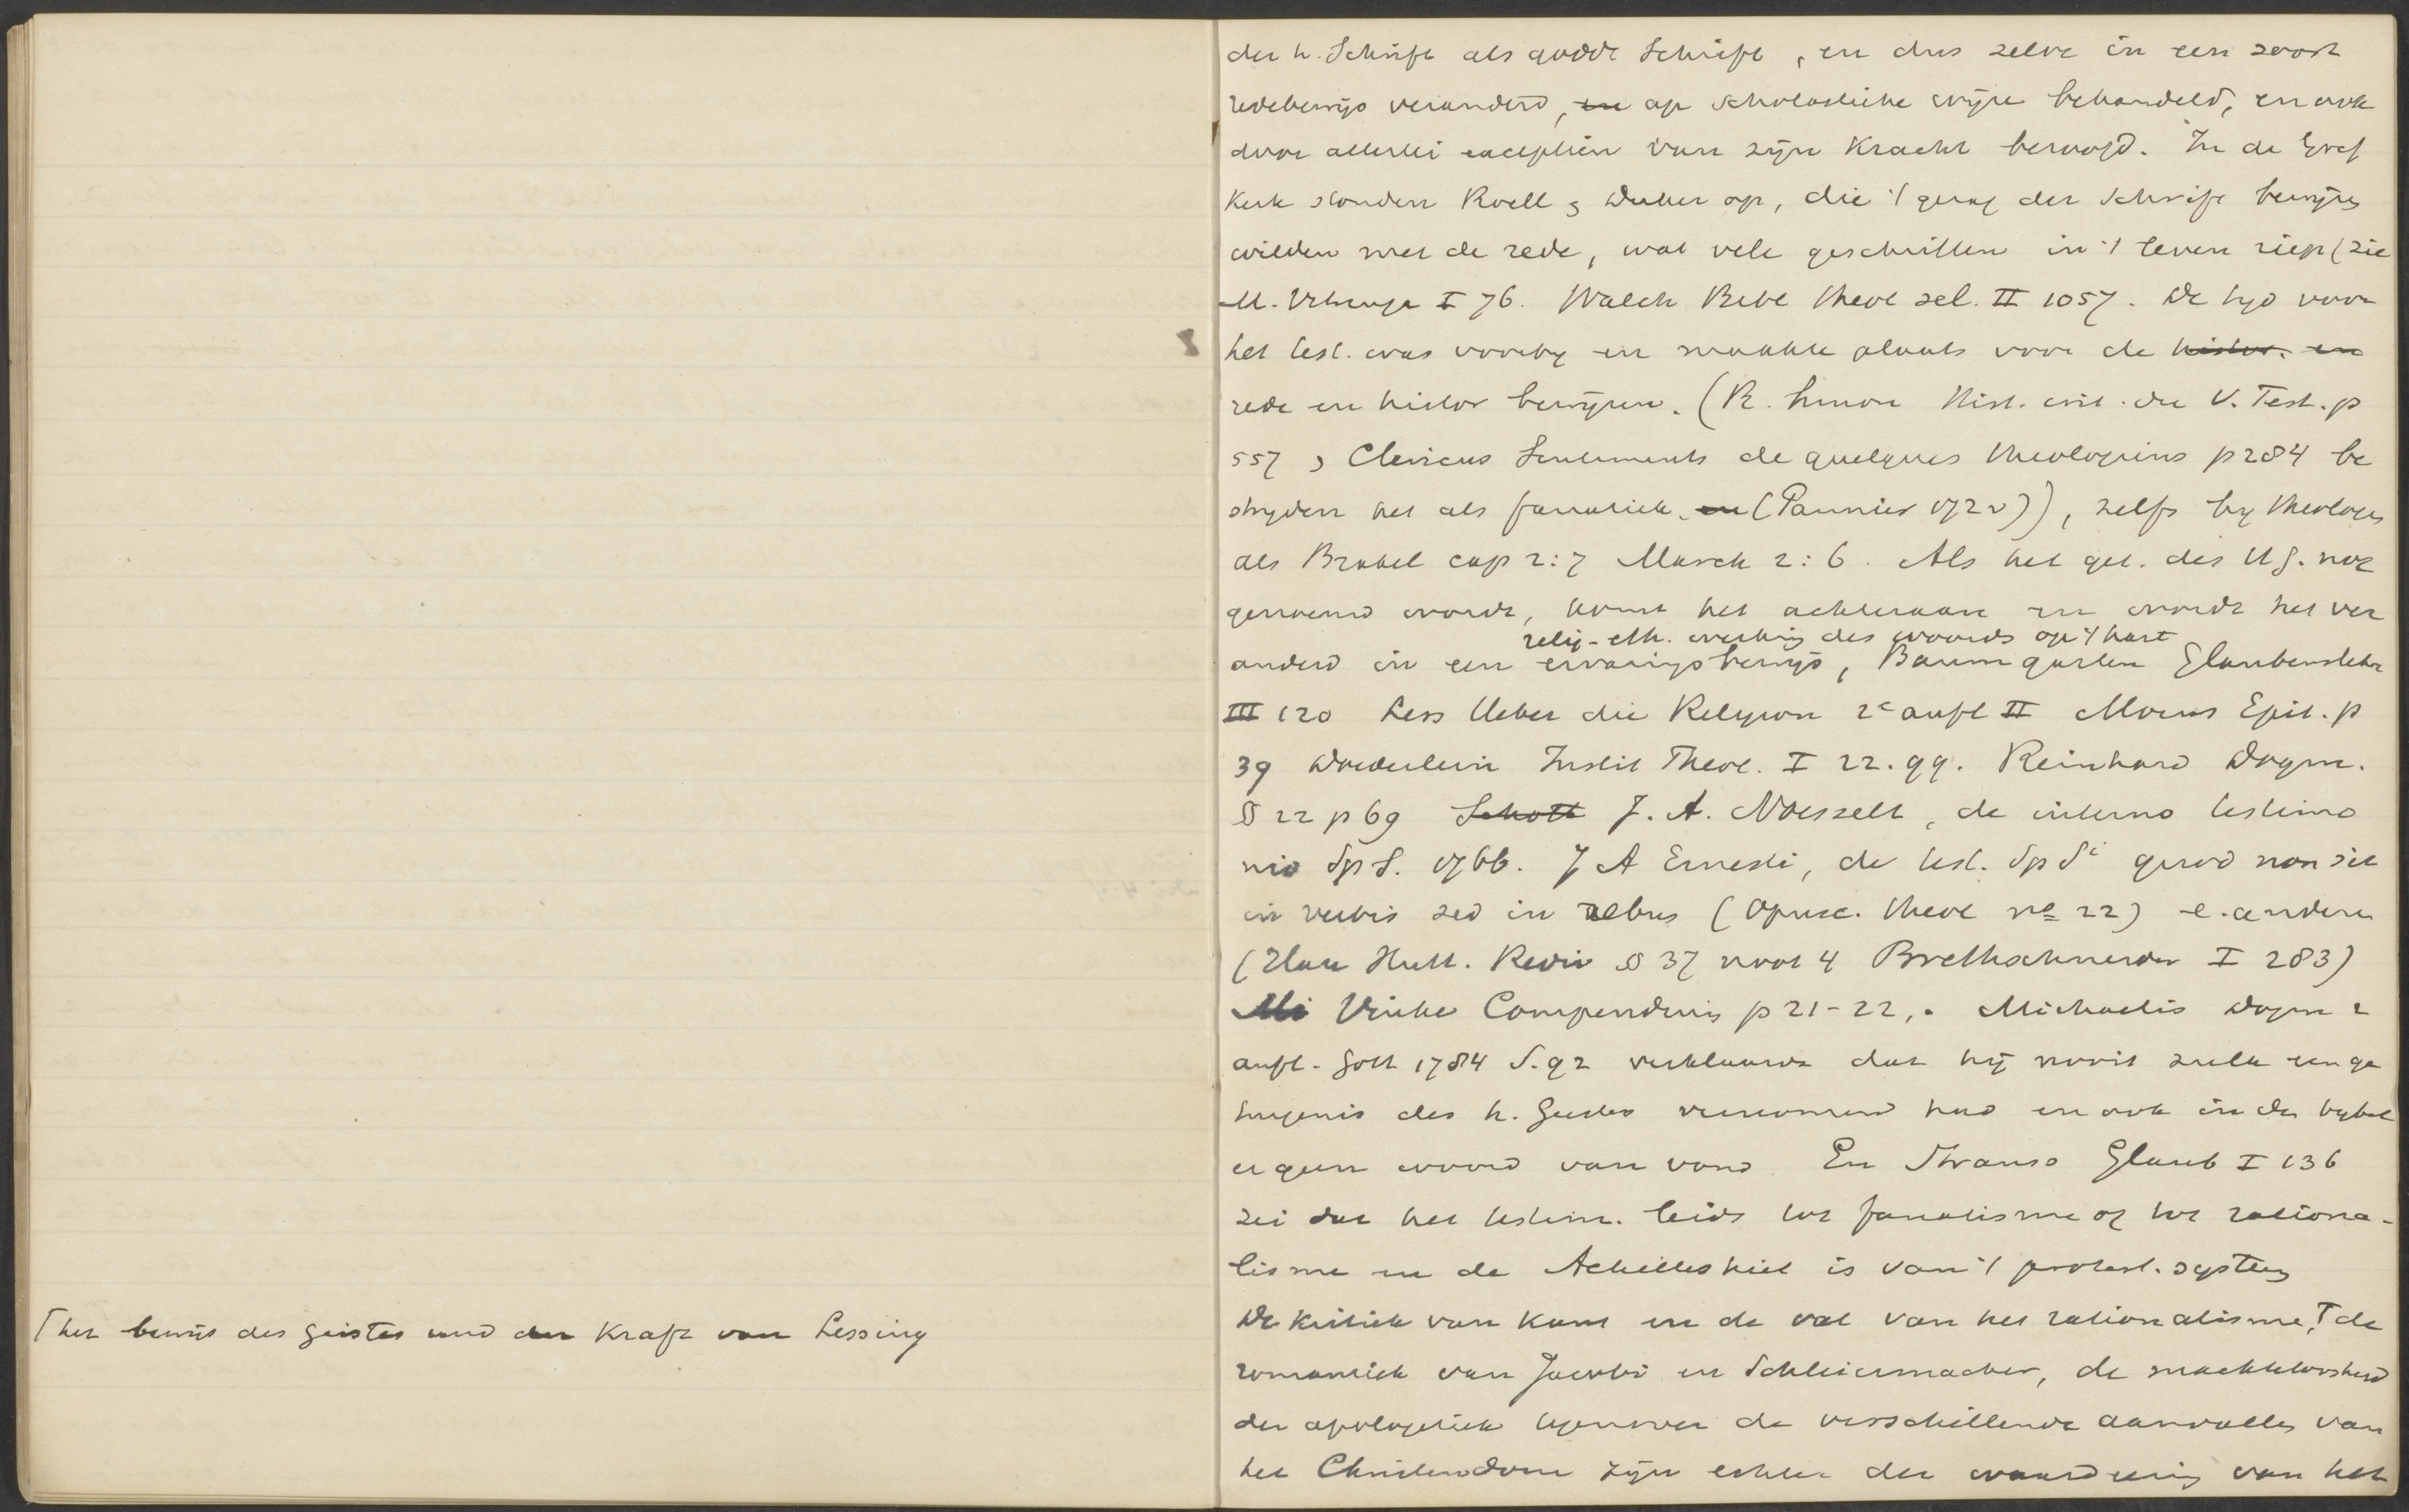 ⌈ het bewijs des Geistes und der Kraft van Lessing
der h. Schrift als godd Schrift, en dus zelve in een soort
redebewijs veranderd, en op scholastieke wijze behandeld, en ook
door allerlei exceptiën van zijn kracht beroofd. In de Gref
kerk stonden Roell & Duker op, die 't gezag der Schrift bewijzen
wilden met de rede, wat vele geschriften in 't leven riep (zie
M. Vitringa I 76. Walch Bibl theol sel. II 1057. De tijd voor
het test. was voorbij en maakte plaats voor de histor. en
rede en histor bewijzen. (R. Simon Hist. crit. du V. Test. p
557 & Clericus Sentiments de quelques theologiens p 284 be
strijden het als fanatiek en (Pannier 172)), zelfs bij theologen
als Brakel cap 2:7 Marck 2:6. Als het get. des H G. nog
genoemd wordt, komt het achteraan en wordt het ver
relig-eth. werking des woords op 't hart
anderd in een ervaringsbewijs, Baumgarten Glaubenslehre
III 120 Less Ueber die Religion 2e aufl II Morus Epit. p
39 Doederlein Instit Theol. I 22.99. Reinhard Dogm.
§ 22 p 69 Schott J. A. Noesselt, de interno testimo
nio Sp S. 1766. J A Ernesti, de test. Sp Si quod non sit
in verbis sed in rebus (Opusc. theol no 22) e. andere
(Hase Hutt. Rediv § 37 noot 4 Brethschneider I 283)
Mi Vinke Compendium p 21-22,. Michaelis Dogm 2
aufl. Gött 1784 S.92 verklaarde dat hij nooit zulk een ge
tuigenis des h. Geestes vernomen had en ook in den bijbel
er geen woord van vond En Strauss Glaub I 136
zei dat het testim. leidt tot fanatisme of tot rationa-
lisme en de Achilleshiel is van 't protest. systeem
De kritiek van Kant en de val van het rationalisme, ⌈ de
romantiek van Jacobi en Schleiermacher, de machteloosheid
der apologetiek tegenover de verschillende aanvallen van
het Christendom zijn echter der waardeering van het